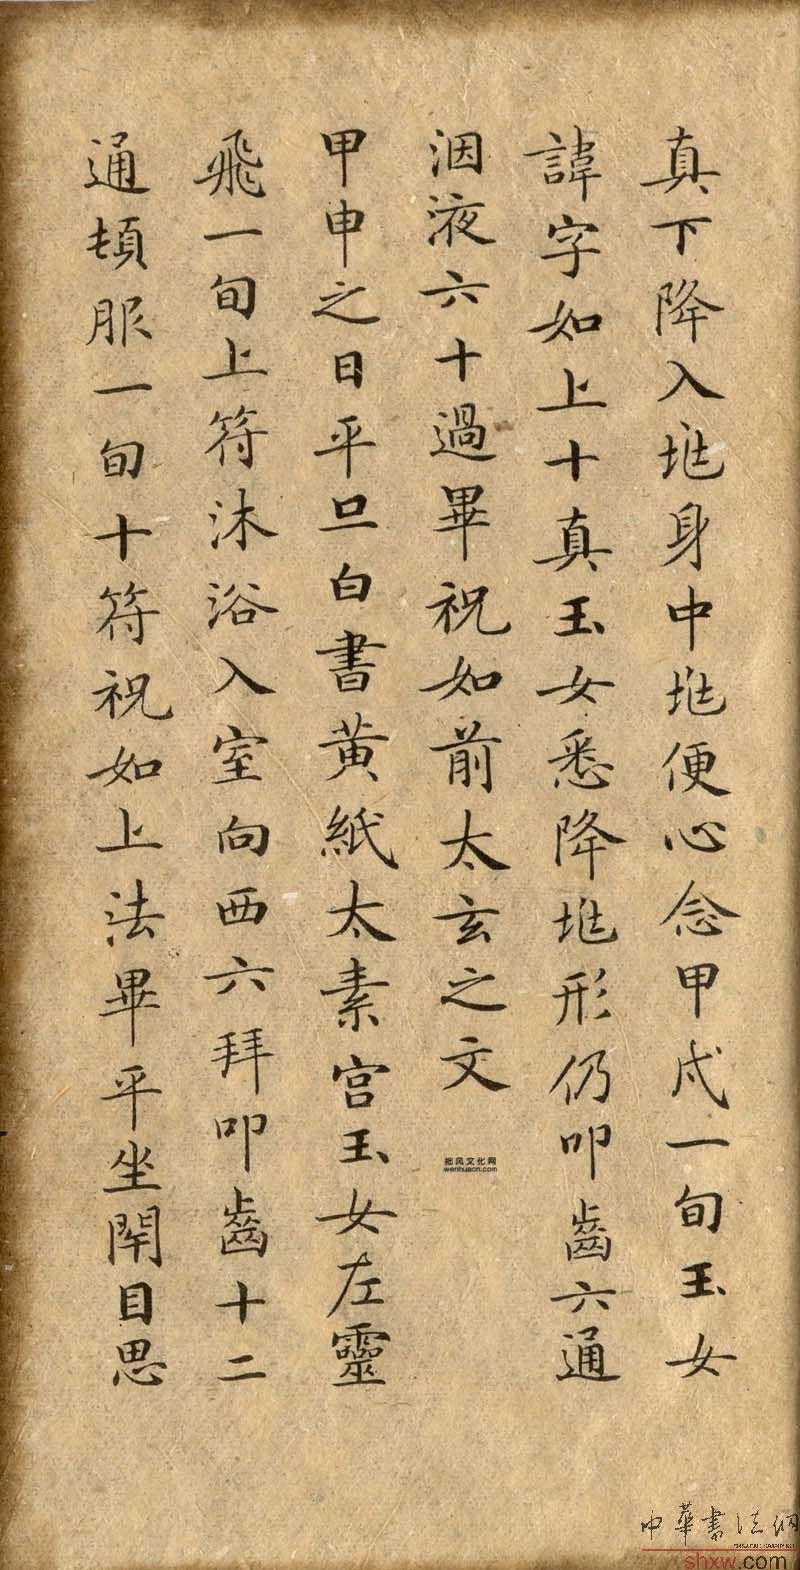 真下降入兆身中兆便心念甲戌一旬玉女
諱字如上十真玉女悉降兆形仍叩齒六通
咽液六十過畢祝如前太玄之文
甲申之日平旦白書黃紙太素宮玉女左靈
飛一旬上符沐浴入室向西六拜叩齒十二
通頓服一旬十符祝如上法畢平坐閉目思
拙风文化网
wenhuacn.com
中華書法網
shxw.com